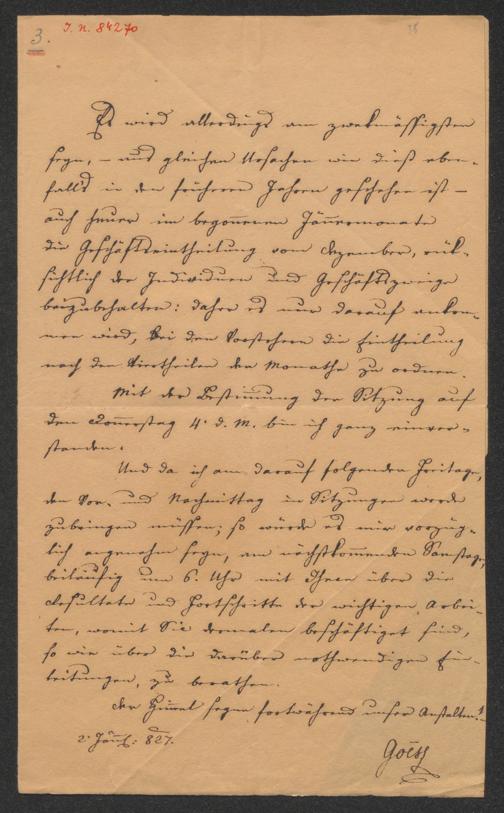 3.
I. N. 84270
Es wird allerdings am zwekmässigsten
seyn, – aus gleichen Ursachen wie dieß eben-
falls in den früheren Jahren geschehen ist –
auch heuer im begoñenen Jäñermonate
die Geschäftseintheilung vom Dezember, rük-
sichtlich der Individuen und Geschäftszweige
beizubehalten: daher es nur darauf ankom-
men wird, bei den Vorstehern die Eintheilung
nach den Viertheilen der Monathe zu ordnen.
Mit der Bestim̃ung der Sitzung auf
den Doñerstag 4. d. M. bin ich ganz einver-
standen.
Und da ich am darauf folgenden Freitage,
den Vor- und Nachmittag in Sitzungen werde
zubringen müssen; so würde es mir vorzüg-
lich angenehm seyn, am nächstkom̃enden Samstage,
beiläufig um 6. Uhr mit Ihnen über die
Resultate und Fortschritte der wichtigen Arbei-
ten, womit Sie dermalen beschäftiget sind,
so wie über die darüber nothwendigen Ein-
leitungen, zu berathen.
Der Him̃el segne fortwährend unsre Anstalten!
2. Jäñ: 827.
Goëss